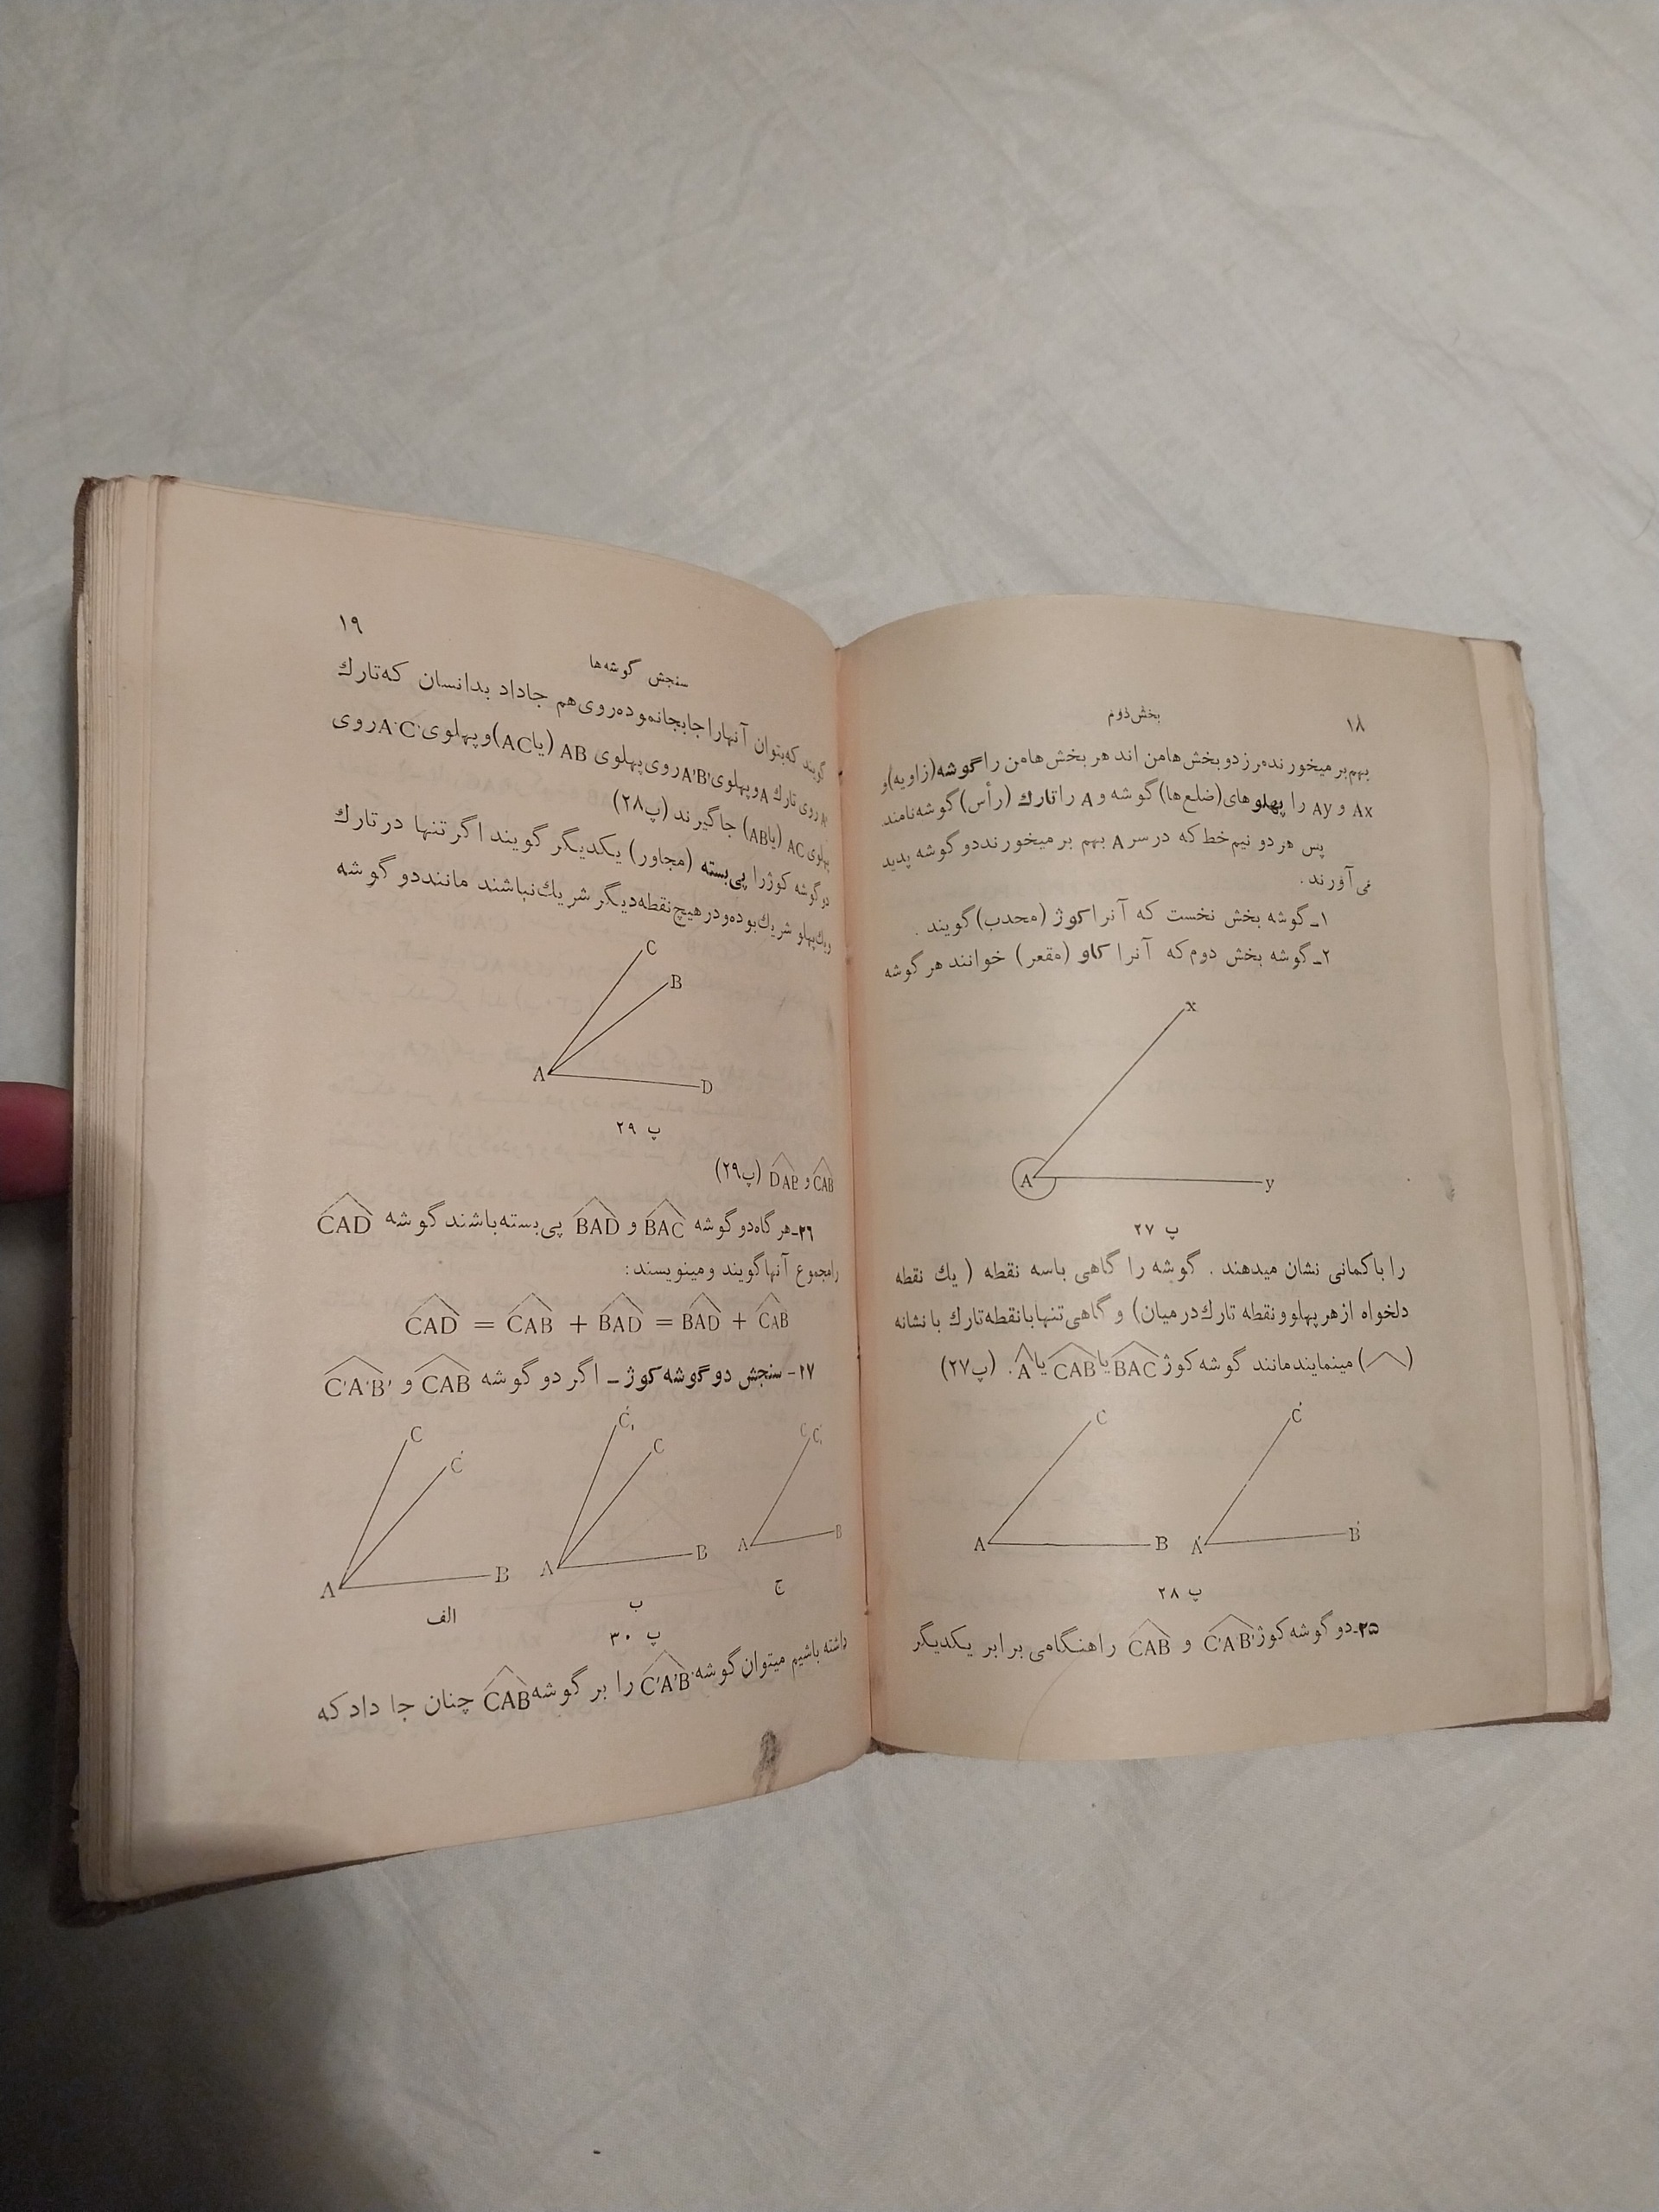 ۱۸
بخش دوم
بهم بر میخورند مرز دو بخش هامن اند هر بخش هامن را گوشه (زاویه) و
Ax و Ay را پهلوهای (ضلع‌ها) گوشه و A را تارك (رأس) گوشه نامند
پس هر دو نیم خط که در سر A بهم بر میخورند دو گوشه پدید
می آورند.
۱ـ گوشه بخش نخست که آنرا کوژ (محدب) گویند.
۲ـ گوشه بخش دوم که آنرا کاو (مقعر) خوانند هر گوشه
x
A
y
پ ۲۷
را با کمانی نشان میدهند. گوشه را گاهی با سه نقطه (یك نقطه
دلخواه از هر پهلو و نقطه تارك در میان) و گاهی تنها با نقطه تارك با نشانه
(︿) مینمایند مانند گوشه کوژ BAC یا CAB یا A. (پ۲۷)
C C'
A B A' B'
پ ۲۸
۲۵ـ دو گوشه کوژ C'A'B' و CAB را هنگامی برابر یکدیگر
۱۹
سنجش گوشه‌ها
گویند که بتوان آنها را جابجا نموده روی هم جا داد بدانسان که تارك
A' روی تارك A و پهلوی A'B' روی پهلوی AB (یا AC) و پهلوی A'C' روی
پهلوی AC (یا AB) جا گیرند (پ۲۸)
دو گوشه کوژ را پی بسته (مجاور) یکدیگر گویند اگر تنها در تارك
و یك پهلو شریك بوده و در هیچ نقطه دیگر شریك نباشند مانند دو گوشه
C
B
A
D
پ ۲۹
CAB و DAB (پ۲۹)
۲۶ـ هر گاه دو گوشه BAC و BAD پی بسته باشند گوشه CAD
را مجموع آنها گویند و مینویسند:
CAD = CAB + BAD = BAD + CAB
۲۷- سنجش دو گوشه کوژ ـ اگر دو گوشه CAB و C'A'B'
C C' A B
C'₁ C A B
C C'₁ A B
الف ب ج
پ ۳۰
داشته باشیم میتوان گوشه C'A'B' را بر گوشه CAB چنان جا داد که